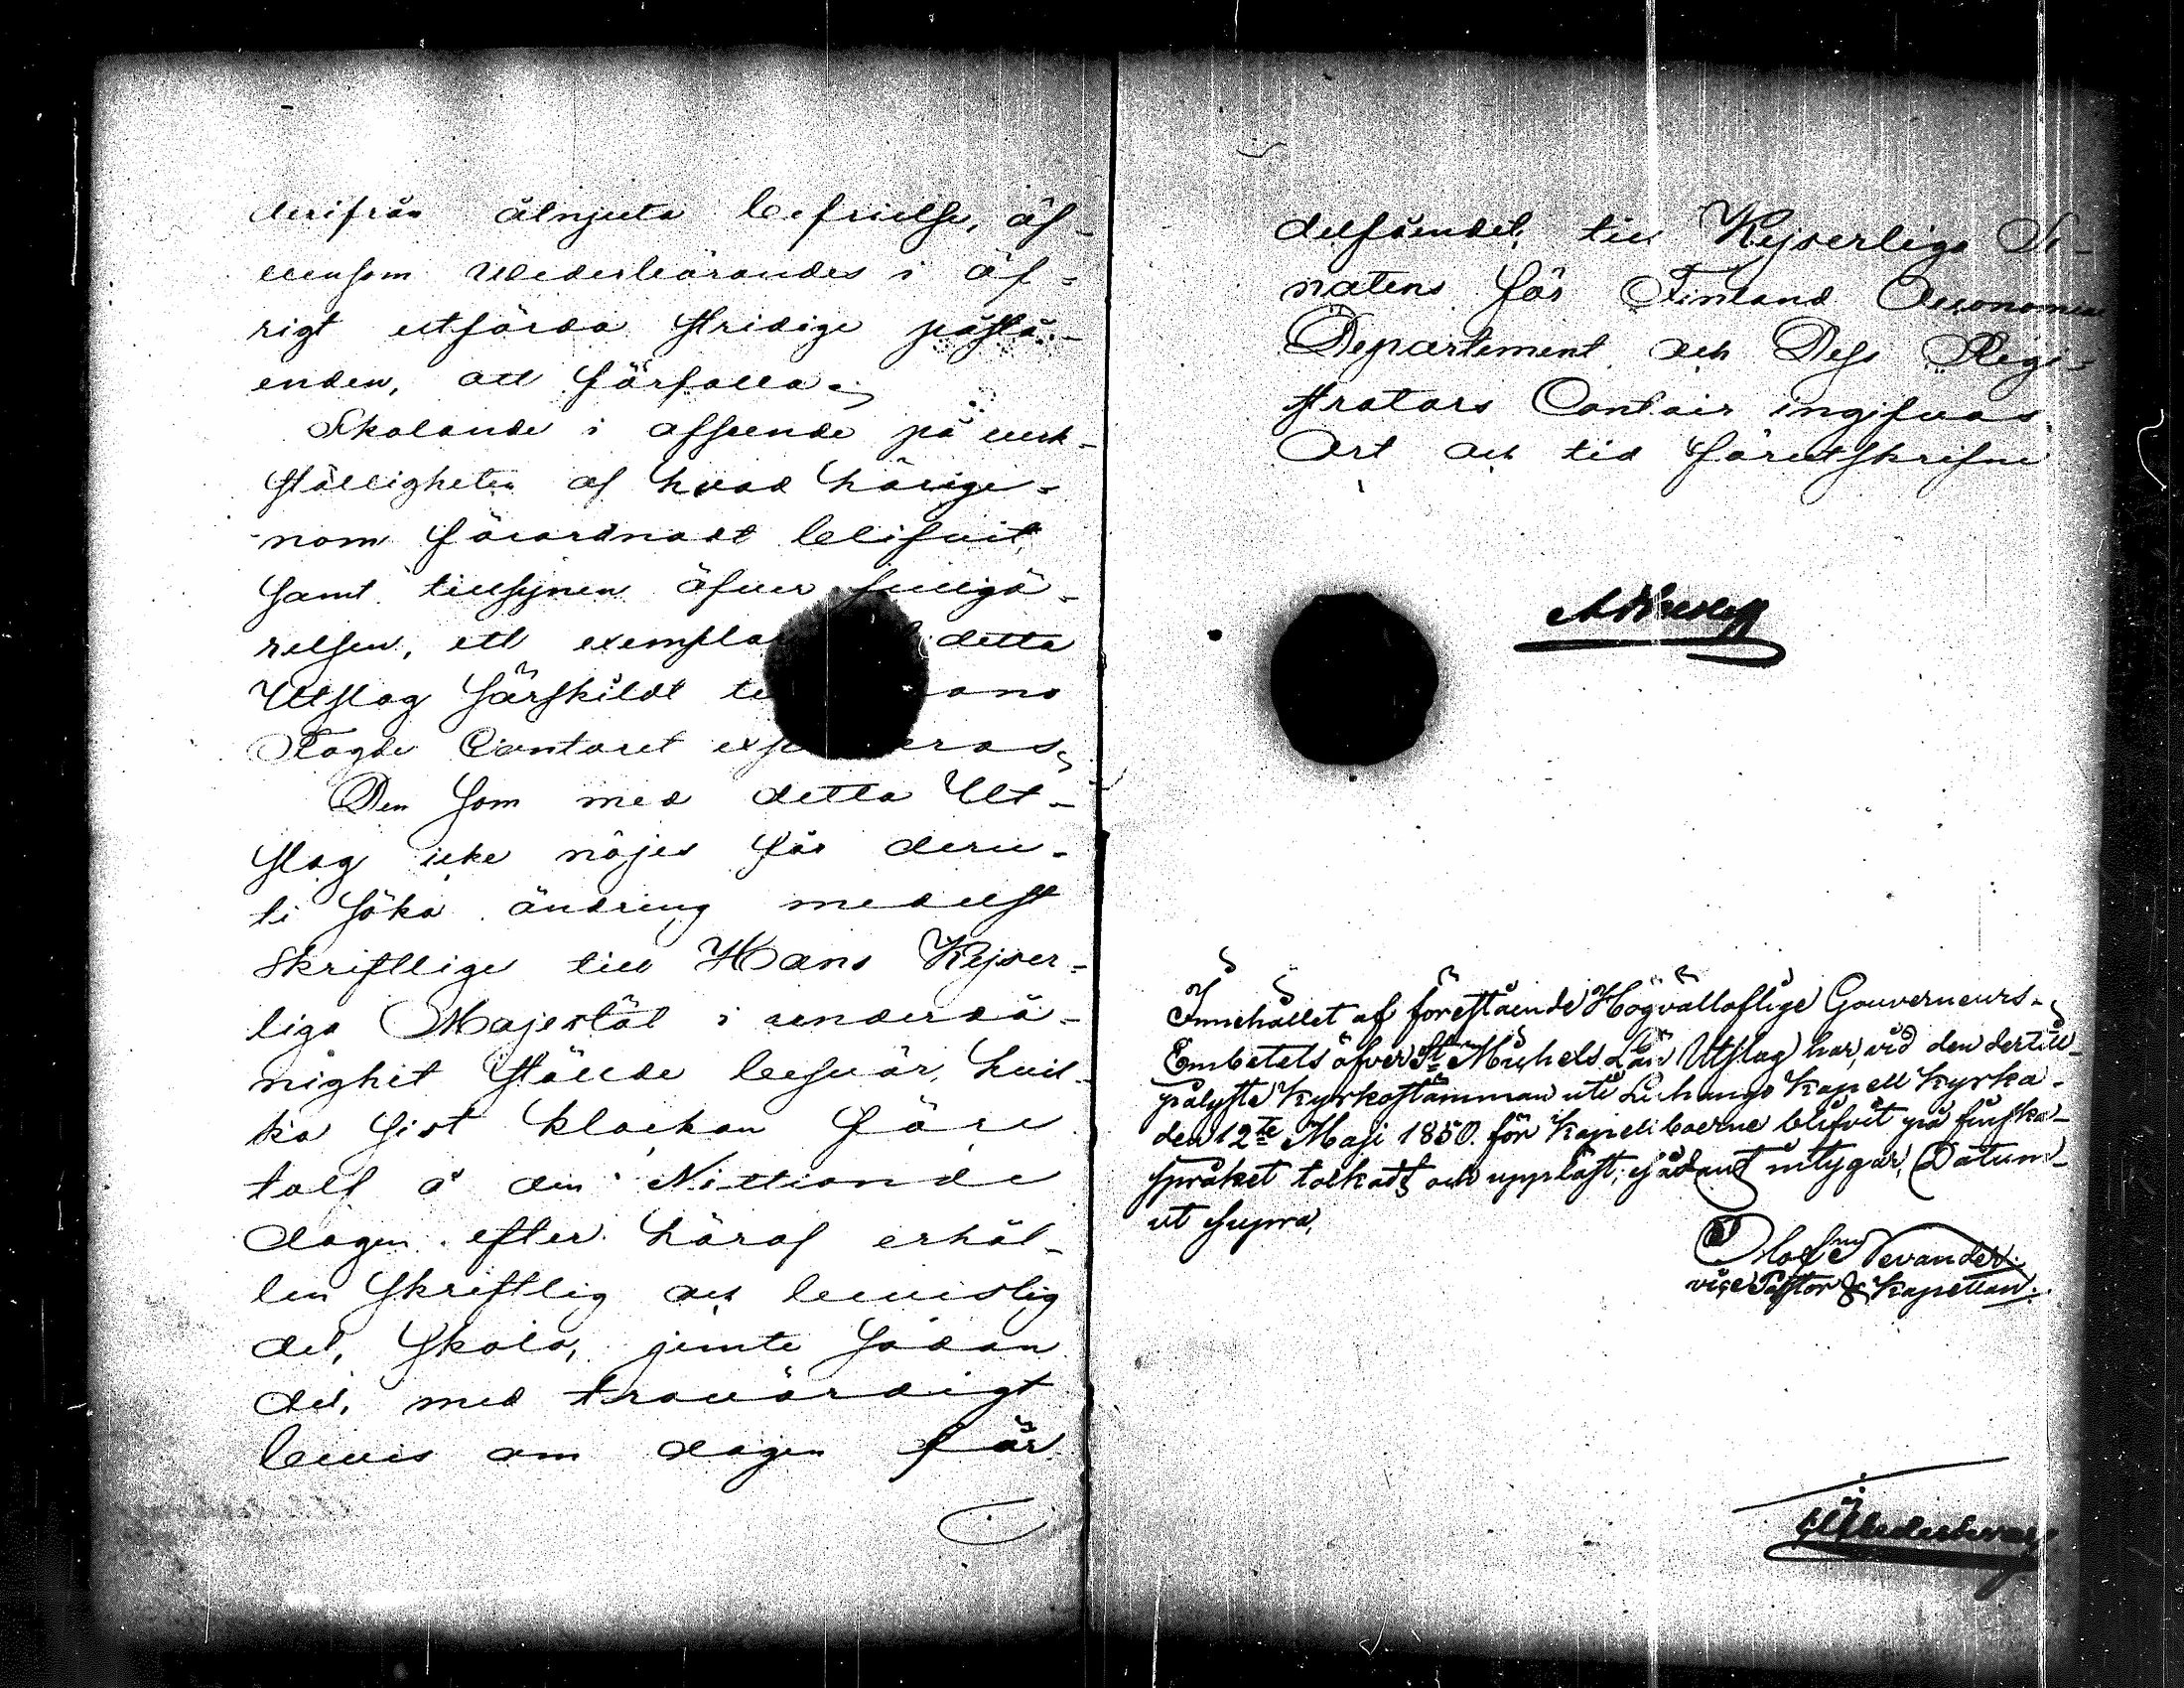 derifrån åtnjuta befrielse, äf-
vensom wederbörandes i öf-
rigt utförda stridige påstå-
enden, att förfalla.
Skolande i afseende på verk-
ställigheten af hvad härige-
nom förordnadt blifvit
samt tillsynen öfver fullgö-
relsen, ett exemplar detta
Utslag särskildt
Fogde Contoret
Den som med detta Ut-
slag icke nöjes får deru-
ti söka ändring medelst
skriftlige till Hans Kejser-
liga Majestät i underdå-
nighet stälde besvär, hvil-
ka sist klockan före
tolf å den Nittionde
dagen efter häraf erhål-
len skriftlig och bevislig
del, skola, jemte sådan
del, med trovärdigt
bevis om dagen för
delfåendet, till Kejserliga Se-
natens för Finland Oeconomie
Departement och Dess Regi-
strators Contoir ingifvas.
Ort och tid förutskrifne
Innehållet af förestående Högvällofliga Gouverneurs-
Embetets öfver St Michels Län Utslag har, vid den dertill
pålyste Kyrkostämman uti Kapell Kyrka
den 12te Maji 1850. för Kapellboerne blifvit på finska
språket tolkadt och uppläst; sådant intygar, Datum
ut supra.
Olof Nevander
vice Pastor & Kapellan.